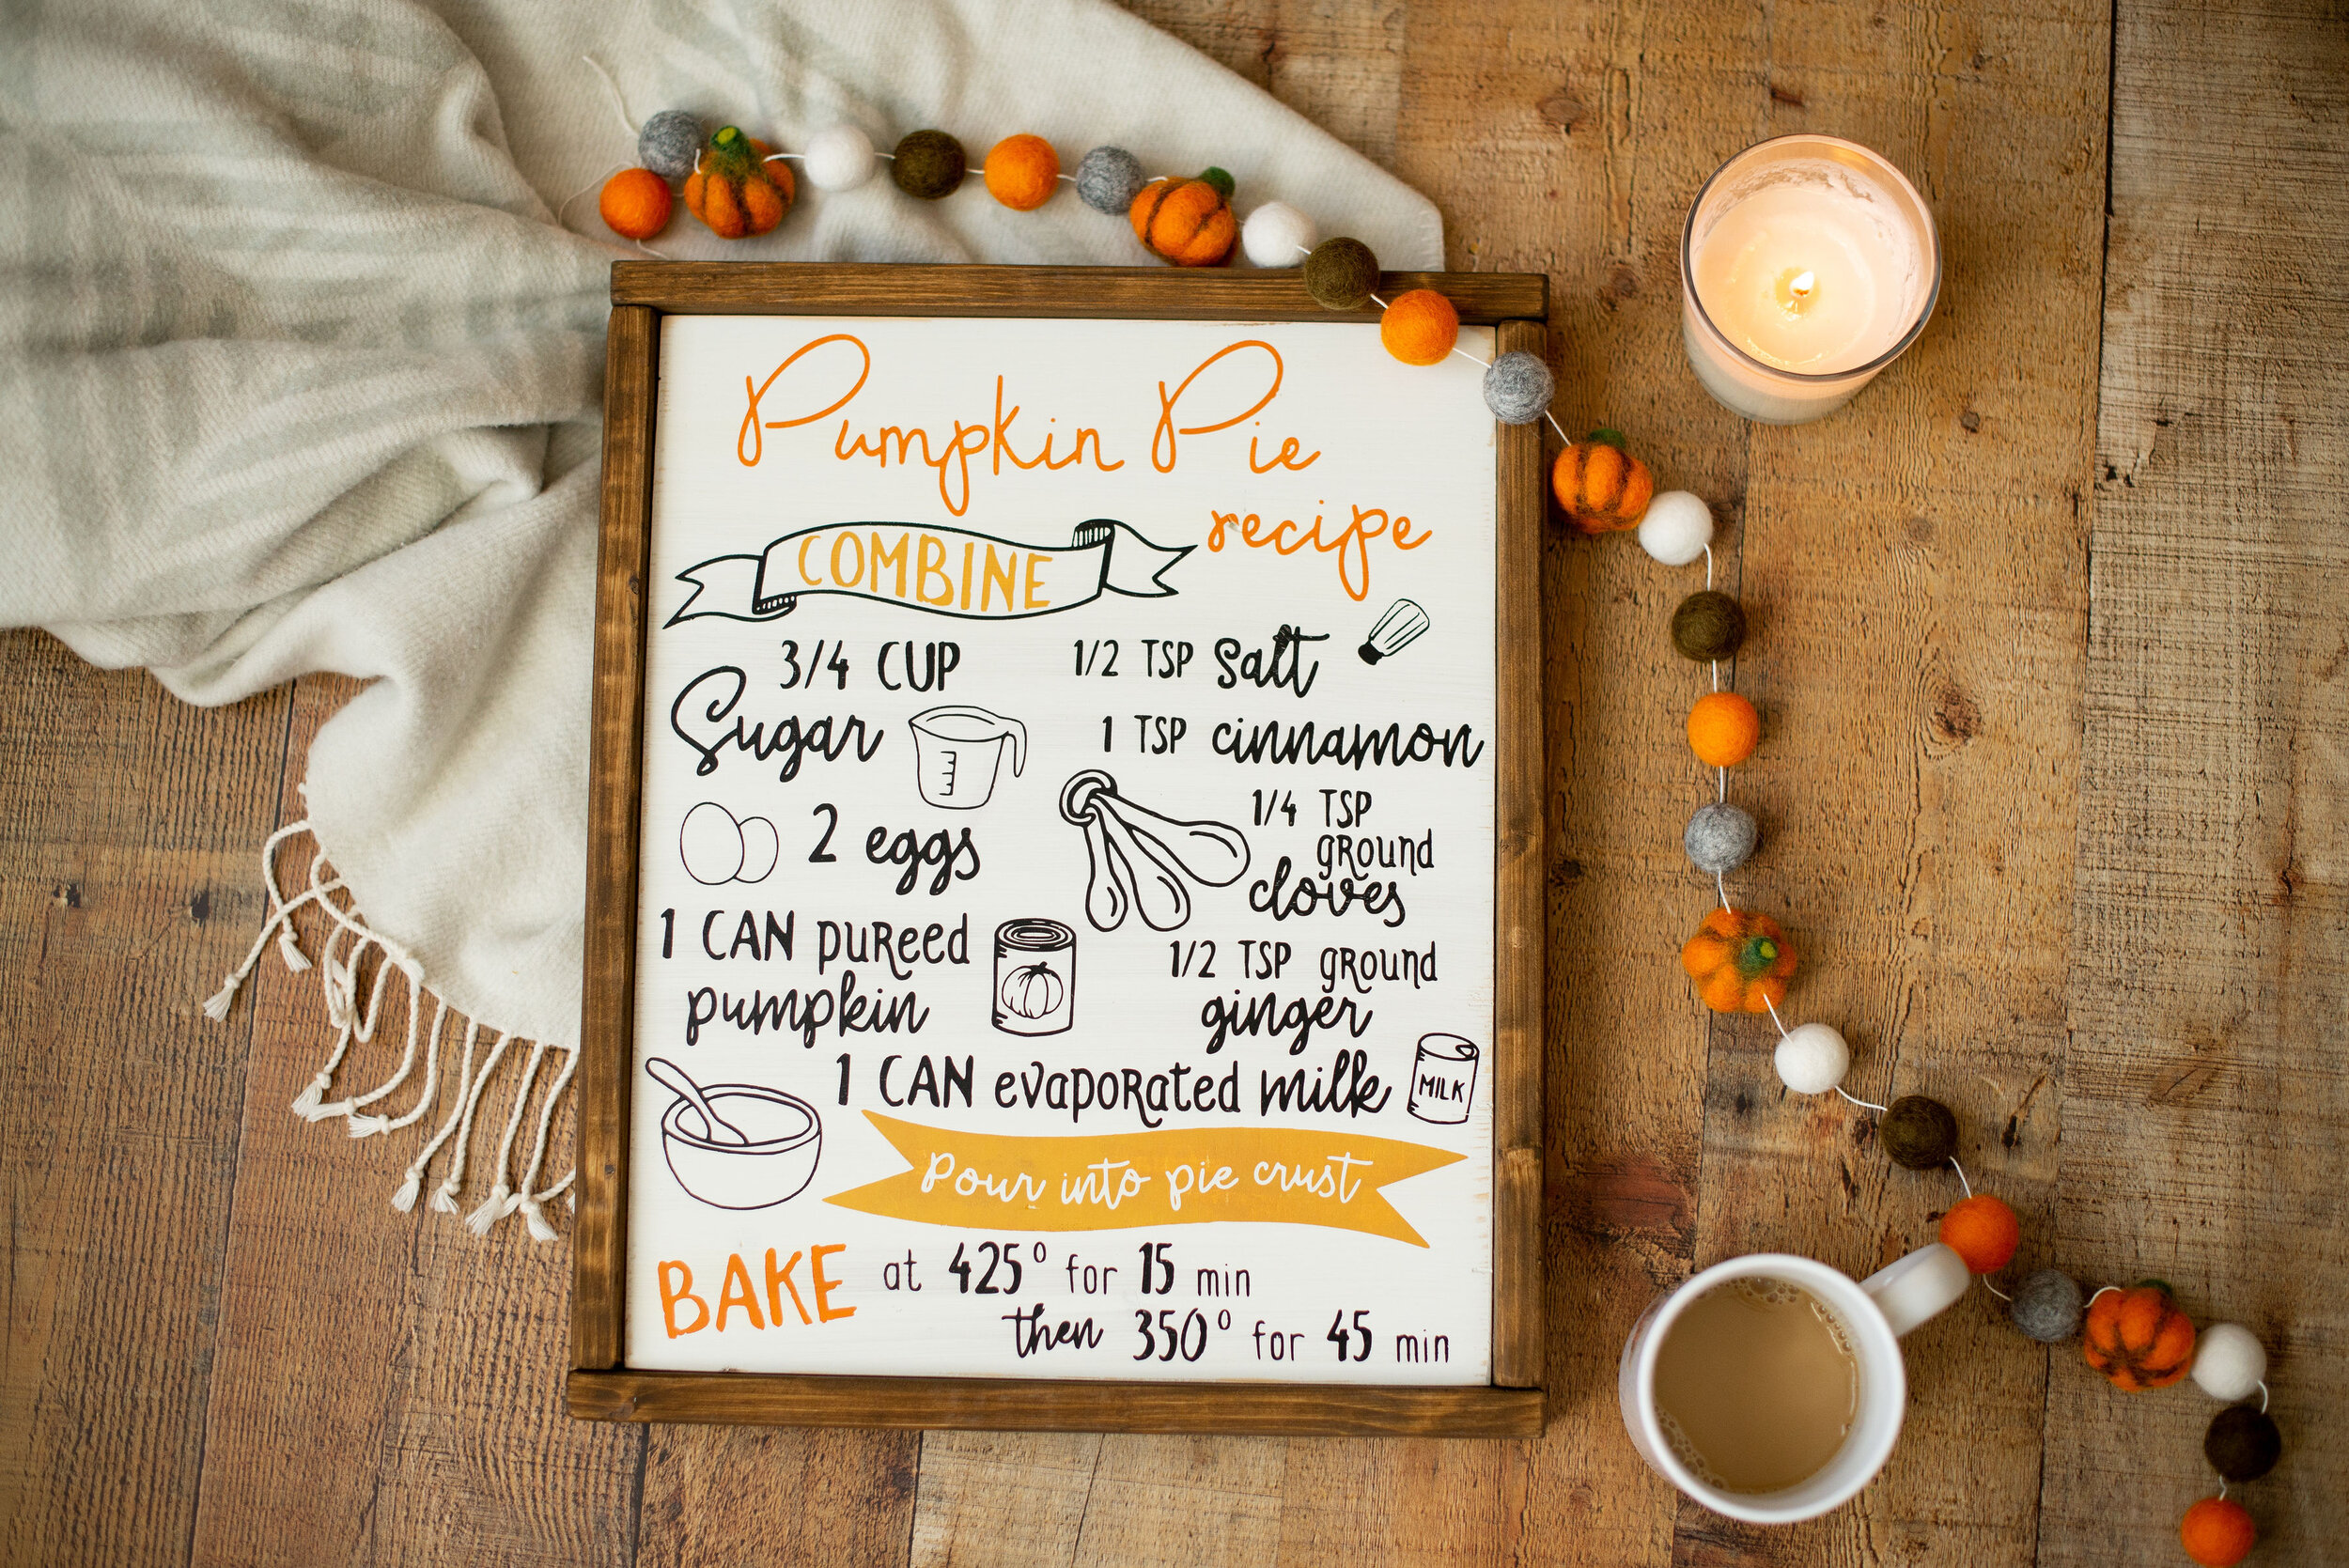 Pumpkin Pie
recipe
COMBINE
3/4 CUP
Sugar
2 eggs
1 CAN pureed
pumpkin
1/2 TSP Salt
1 TSP cinnamon
1/4 TSP
ground
cloves
1/2 TSP ground
ginger
1 CAN evaporated milk
MILK
Pour into pie crust
BAKE at 425° for 15 min
then 350° for 45 min